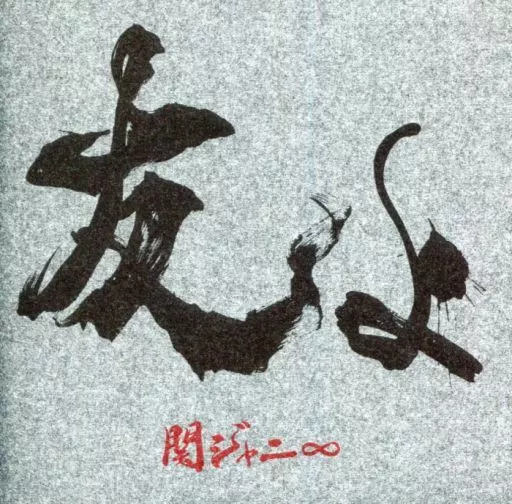 友よ
関ジャニ∞